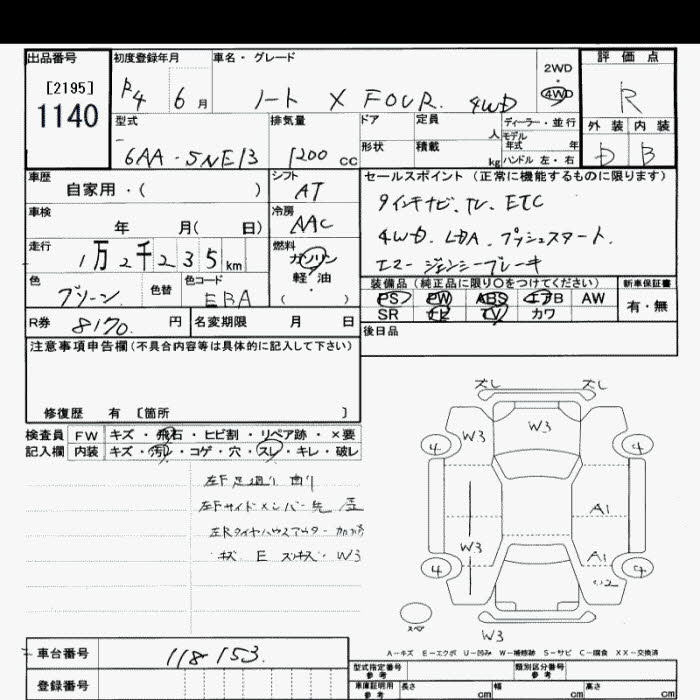 出品番号 初度登録年月 車名・グレード 2WD 4WD 評価点
[2195] 1140 R4 6月 ノート X FOUR. 4WD R
型式 排気量 ドア 定員 人 ディーラー・並行 モデル年式 年 外装 内装
6AA-SNE13 1200cc 形状 積載 kg ハンドル 左・右 D B
車歴 自家用・( ) シフト AT セールスポイント(正常に機能するものに限ります)
車検 年 月( 日) 冷房 AAC 9インチナビ. TV. ETC
走行 1万2千235km 燃料 ガソリン 軽・油 ( ・ ) 4WD. LDA. プッシュスタート.
エマージェンシーブレーキ
色 グリーン. 色替 色コード EBA 装備品(純正品に限り○をつけてください) 新車保証書
PS PW ABS エアB AW 有・無
R券 8170. 円 名変期限 月 日 SR ナビ TV カワ
注意事項申告欄(不具合内容等は具体的に記入して下さい) 後日品
修復歴 有 〔箇所 〕
検査員 FW キズ・飛石・ヒビ割・リペア跡・×要
記入欄 内装 キズ・汚レ・コゲ・穴・スレ・キレ・破レ
左F足廻り曲り
左Fサイドメンバー先
左Rタイヤハウスアウター 加修
キズ E W3
ズレ ズレ
W3 W3
4 4
A1
W3 A1
4 4
スペア
W3
A-キズ E-エクボ U-凹み W-補修跡 S-サビ C-腐食 XX-交換済
車台番号 118153. 型式指定番号 参考 類別区分番号 参考
登録番号 車庫証明用 参考 長さ cm 幅 cm 高さ cm